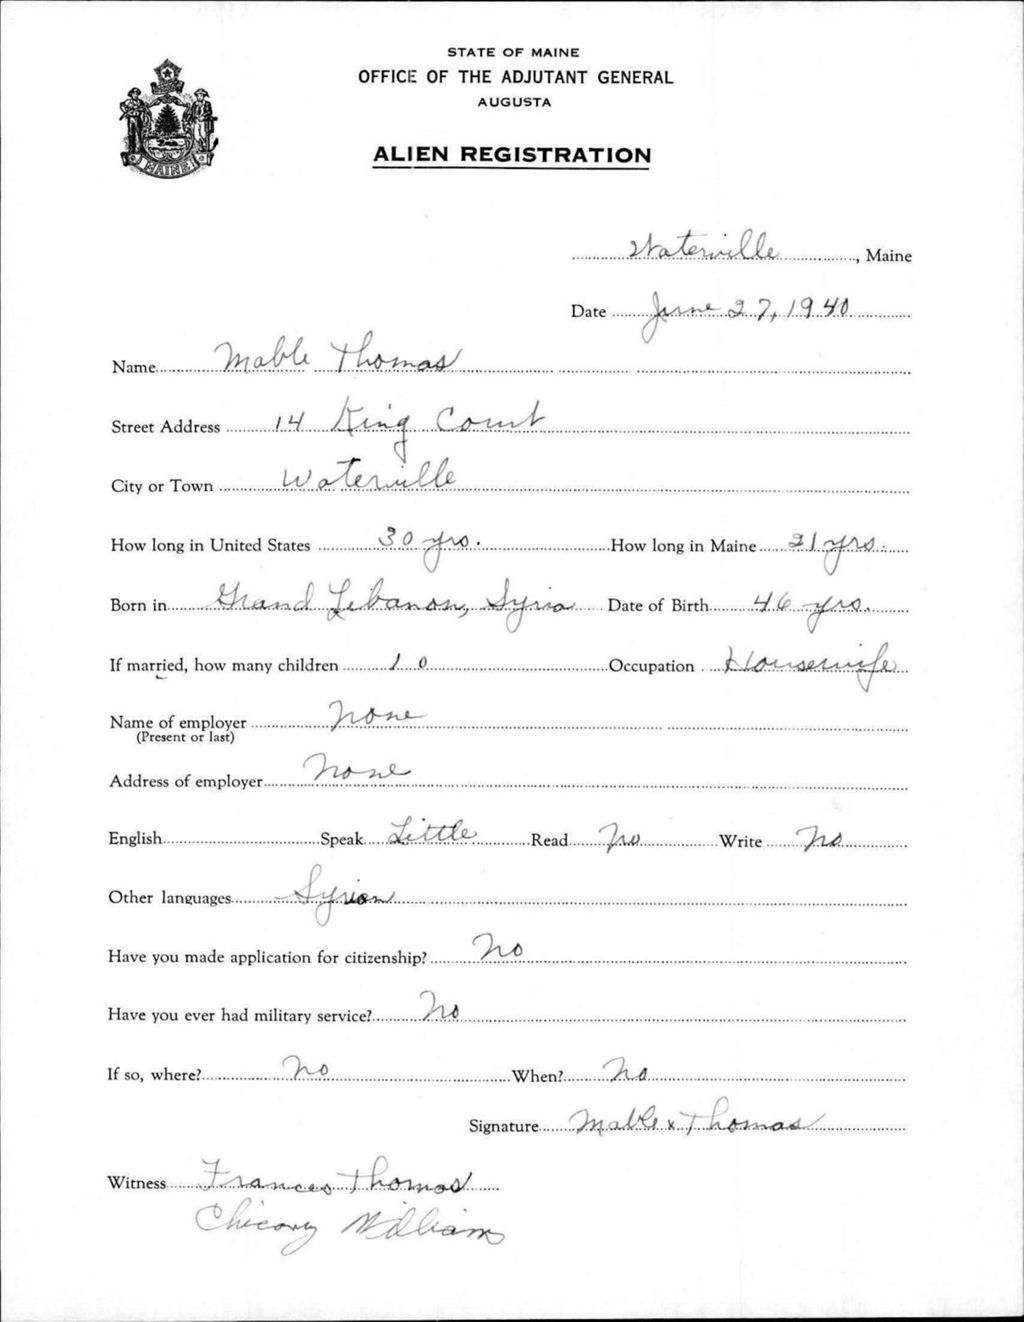 STATE OF MAINE
OFFICE OF THE ADJUTANT GENERAL
AUGUSTA
ALIEN REGISTRATION
MAINE
Waterville, Maine
Date June 27, 1940
Name Mable Thomas
Street Address 14 King Court
City or Town Waterville
How long in United States 30 yrs. How long in Maine 21 yrs.
Born in Grand Lebanon, Syria Date of Birth 46 yrs.
If married, how many children 10 Occupation Housewife
Name of employer None
(Present or last)
Address of employer None
English Speak Little Read No Write No
Other languages Syrian
Have you made application for citizenship? No
Have you ever had military service? No
If so, where? No When? No
Signature Mable x Thomas
Witness Frances Thomas
William